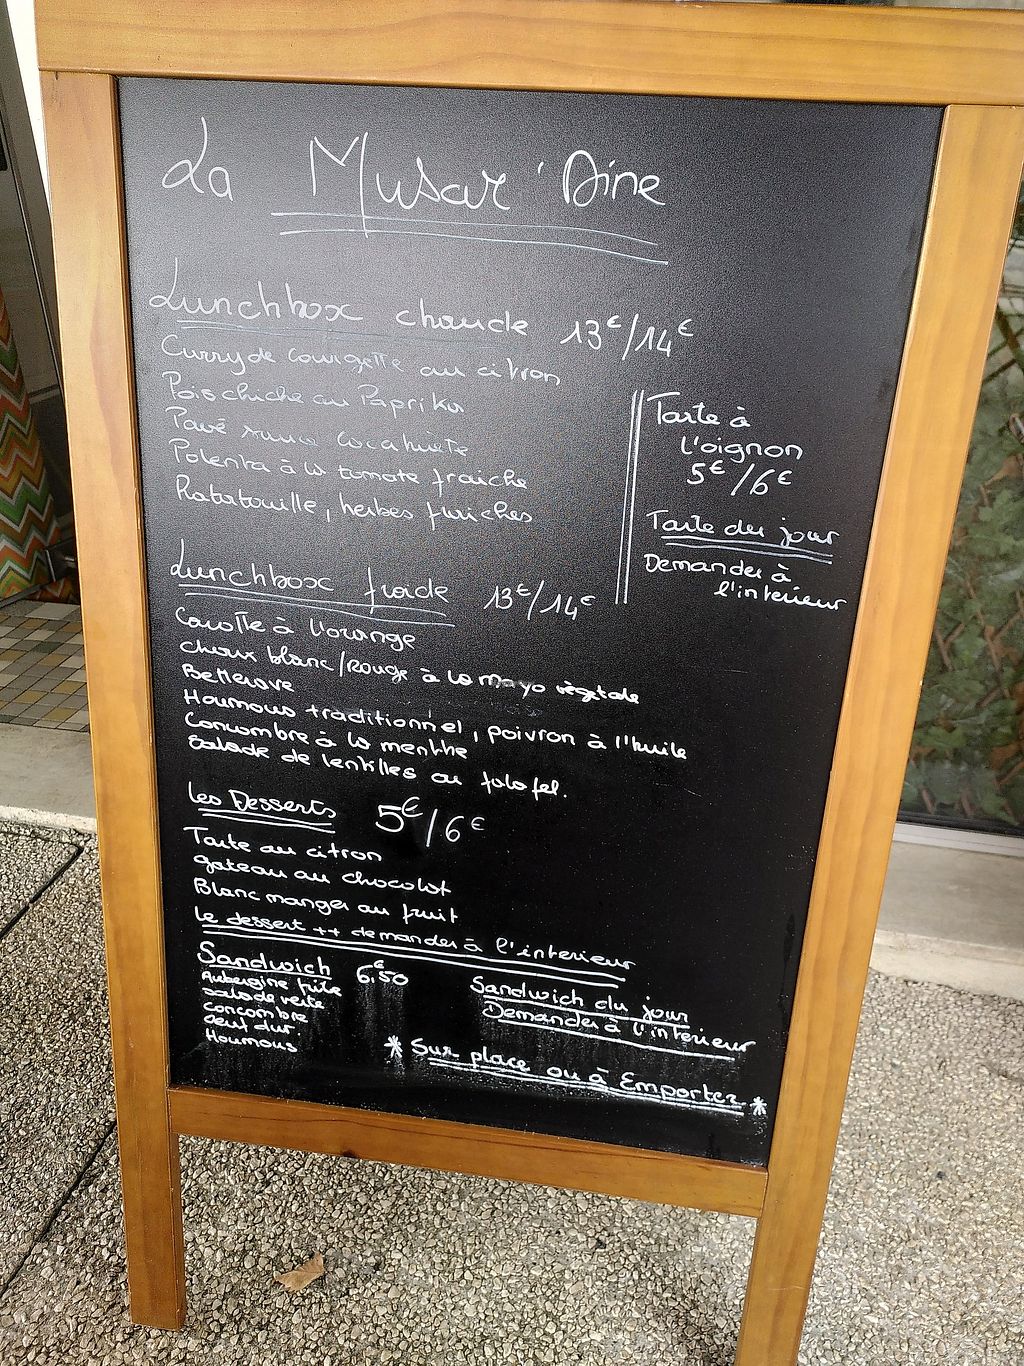 La Musar'Dine
Lunchbox chaude 13€/14€
Curry de courgette au citron
Pois chiche au Paprika
Pavé sauce cacahuète
Polenta à la tomate fraiche
Ratatouille, herbes fraiches
Tarte à
l'oignon
5€/6€
Tarte du jour
Demander à
l'interieur
Lunchbox froide 13€/14€
Carotte à l'orange
choux blanc/Rouge à la mayo végétale
Betterave
Houmous traditionnel, poivron à l'huile
Concombre à la menthe
Salade de lentilles au falafel.
Les Desserts 5€/6€
Tarte au citron
gateau au chocolat
Blanc manger au fruit
le dessert ++ demander à l'interieur
Sandwich 6€50
Aubergine frite
salade verte
concombre
oeuf dur
Houmous
Sandwich du jour
Demander à l'interieur
* Sur place ou à Emporter *